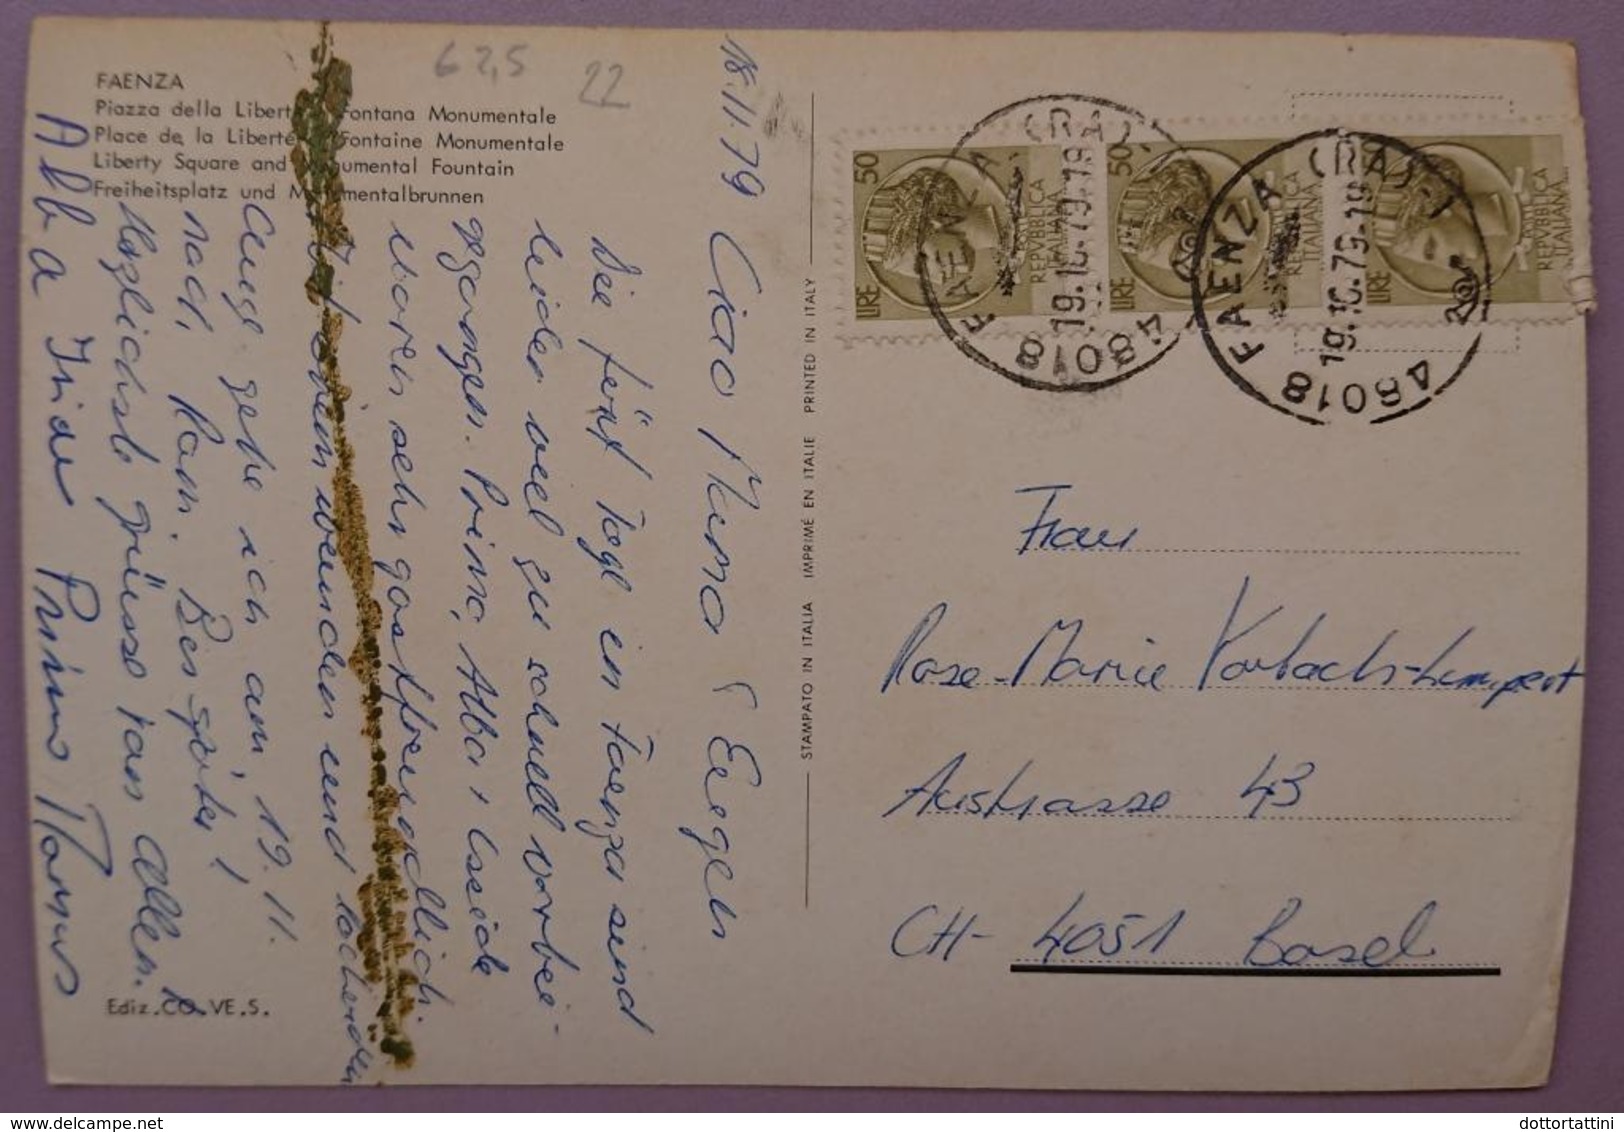 FAENZA
Piazza della Libert Fontana Monumentale
Place de la Liberté Fontaine Monumentale
Liberty Square and Monumental Fountain
Freiheitsplatz und Monumentalbrunnen
62,5
22
18.11.79
Ciao Mema Eugeli
Die fünf Tage in Faenza sind
leider viel zu schnell vorbei-
gegangen. Primo, Alba + Iseide
waren sehr gastfreundlich.
einem wunden und lachenden
Auge gehe ich am, 19.11.
nach Rom. Bis später!
Herzlichste grüsse von allen.
Alba Iride Primo Marius
Ediz. CO. VE. S.
STAMPATO IN ITALIA IMPRIMÉ EN ITALIE PRINTED IN ITALY
50 LIRE POSTE REPVBBLICA ITALIANA
50 LIRE REPVBBLICA ITALIANA
LIRE REPVBBLICA ITALIANA
48018 FAENZA (RA)
19.10.79.19
48018 FAENZA (RA)
19.10.79.19
Frau
Rose-Marie Vorbach-Lempert
Austrasse 43
CH- 4051 Basel
dottortattini